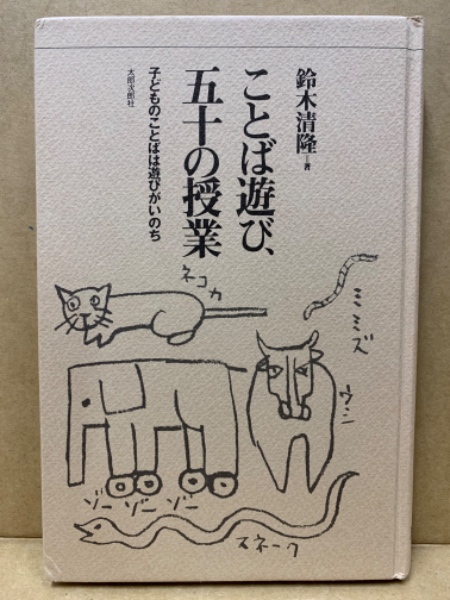 鈴木清隆＝著
ことば遊び、
五十の授業
子どものことばは遊びがいのち
太郎次郎社
ネコカ
ミミズ
ウシ
ゾー ゾー ゾー
スネーク